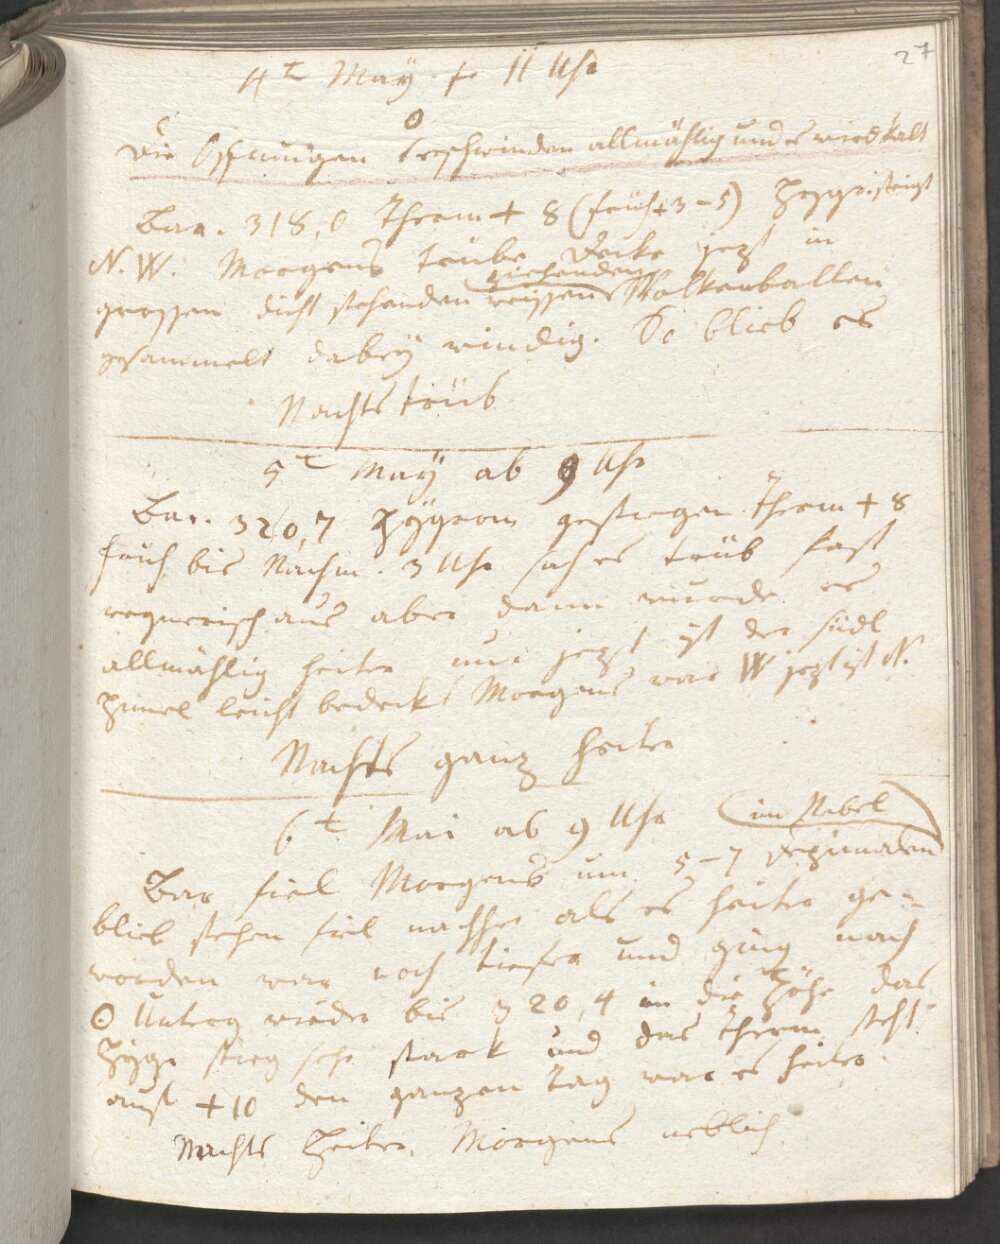 27
4t May f. 11 Uhr
Die Öffnungen verschwinden allmählig und es wird kalt
Bar. 318,0 Therm + 8 (früh + 3 - 5) Hygr. steigt
N. W. Morgens trübe Decke jezt in
ziehenden
grossen dicht stehenden weissen Wolkenballen
gesammelt dabey windig. So blieb es
Nachts trüb
5t May ab 9 Uhr
Bar. 320,7 Hygrom gestiegen Therm + 8
früh bis Nachm. 3 Uhr sah es trüb fast
regnerisch aus aber dann wurde es
allmählig heiter nur jezt ist der südl
Himel leicht bedeckt Morgens war W jezt ist N.
Nachts ganz heiter
6t Mai ab 9 Uhr
im Nebel
Bar fiel Morgens um 5-7 Dezimalen
blieb stehen fiel nachher als es heiter ge-
worden war noch tiefer und ging nach
☉ Unterg wieder bis 320,4 in die Höhe das
Hygr stieg sehr stark und das Therm steht
auf + 10 den ganzen Tag war es heiter.
Nachts Heiter. Morgens neblich